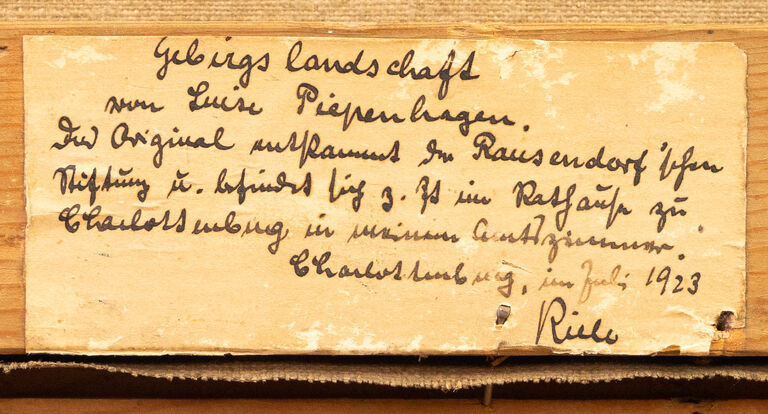 Gebirgslandschaft
von Luise Piepenhagen.
Das Original entstammt der Rausendorf'schen
Stiftung u. befindet sich z. Zt im Rathause zu
Charlottenburg in meinem Amtszimmer.
Charlottenburg, im Juli 1923